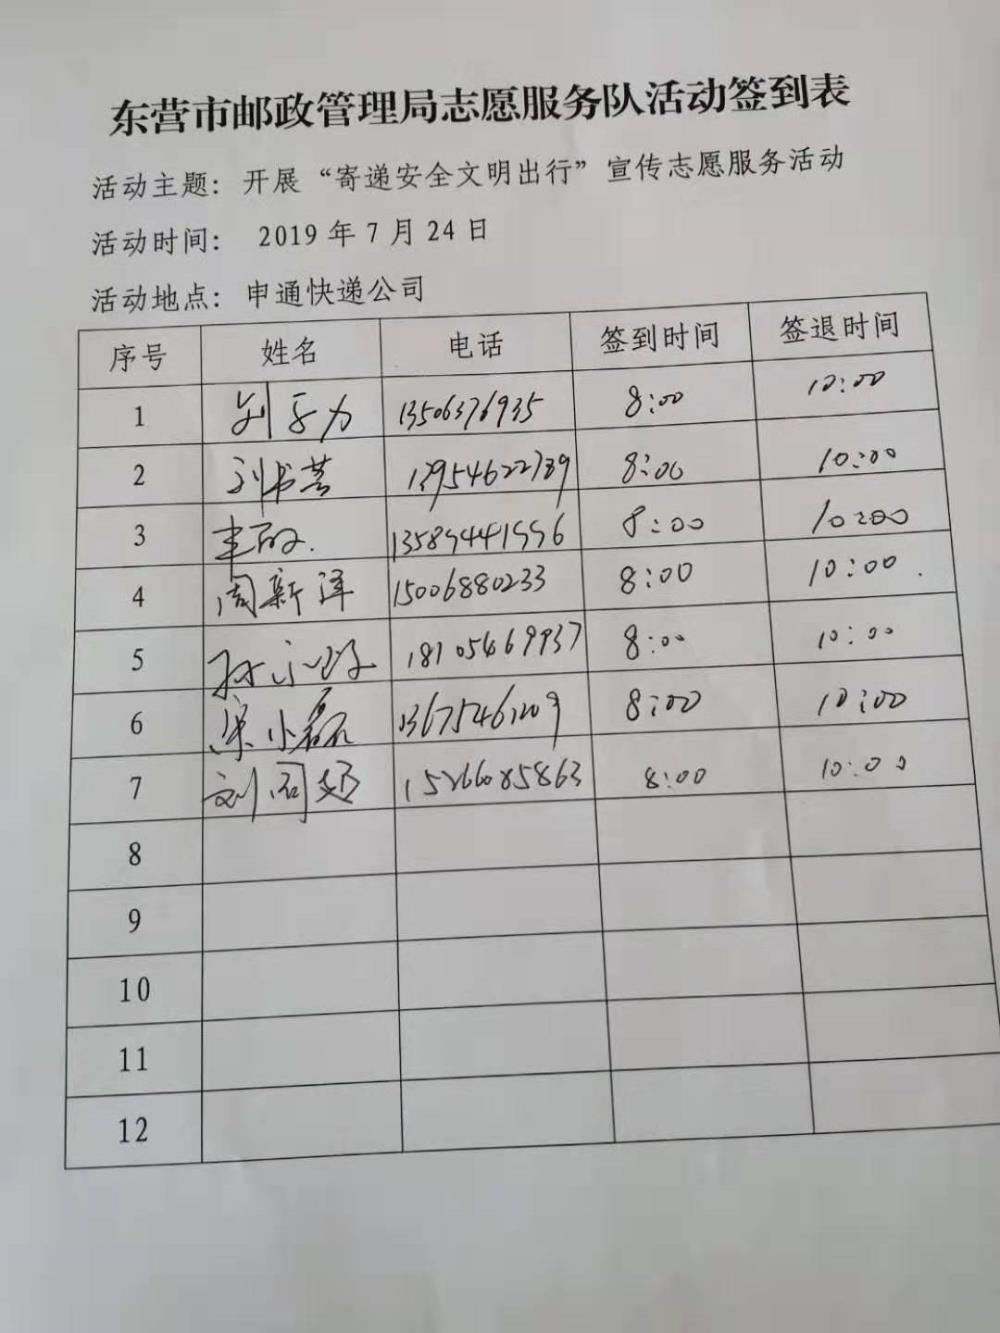 东营市邮政管理局志愿服务队活动签到表
活动主题：开展“寄递安全文明出行”宣传志愿服务活动
活动时间： 2019年7月24日
活动地点：申通快递公司
序号 姓名 电话 签到时间 签退时间
1 13506376935 8:00 10:00
2 刘书芸 8:00 10:00
3 8:00 10:00
4 周新洋 15006880233 8:00 10:00
5 18105469937 8:00 10:00
6 宋小磊 13675461209 8:00 10:00
7 15266085863 8:00 10:00
8
9
10
11
12